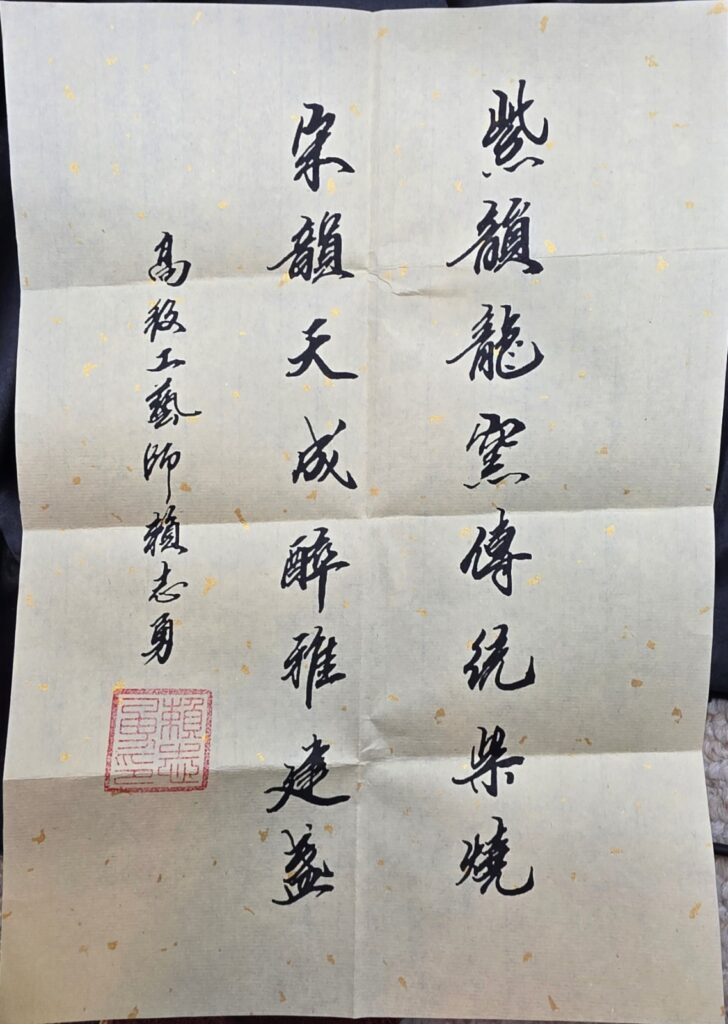 紫韻龍窯傳統柴燒
宋韻天成醉雅建盏
高级工藝師賴志勇
賴志勇印